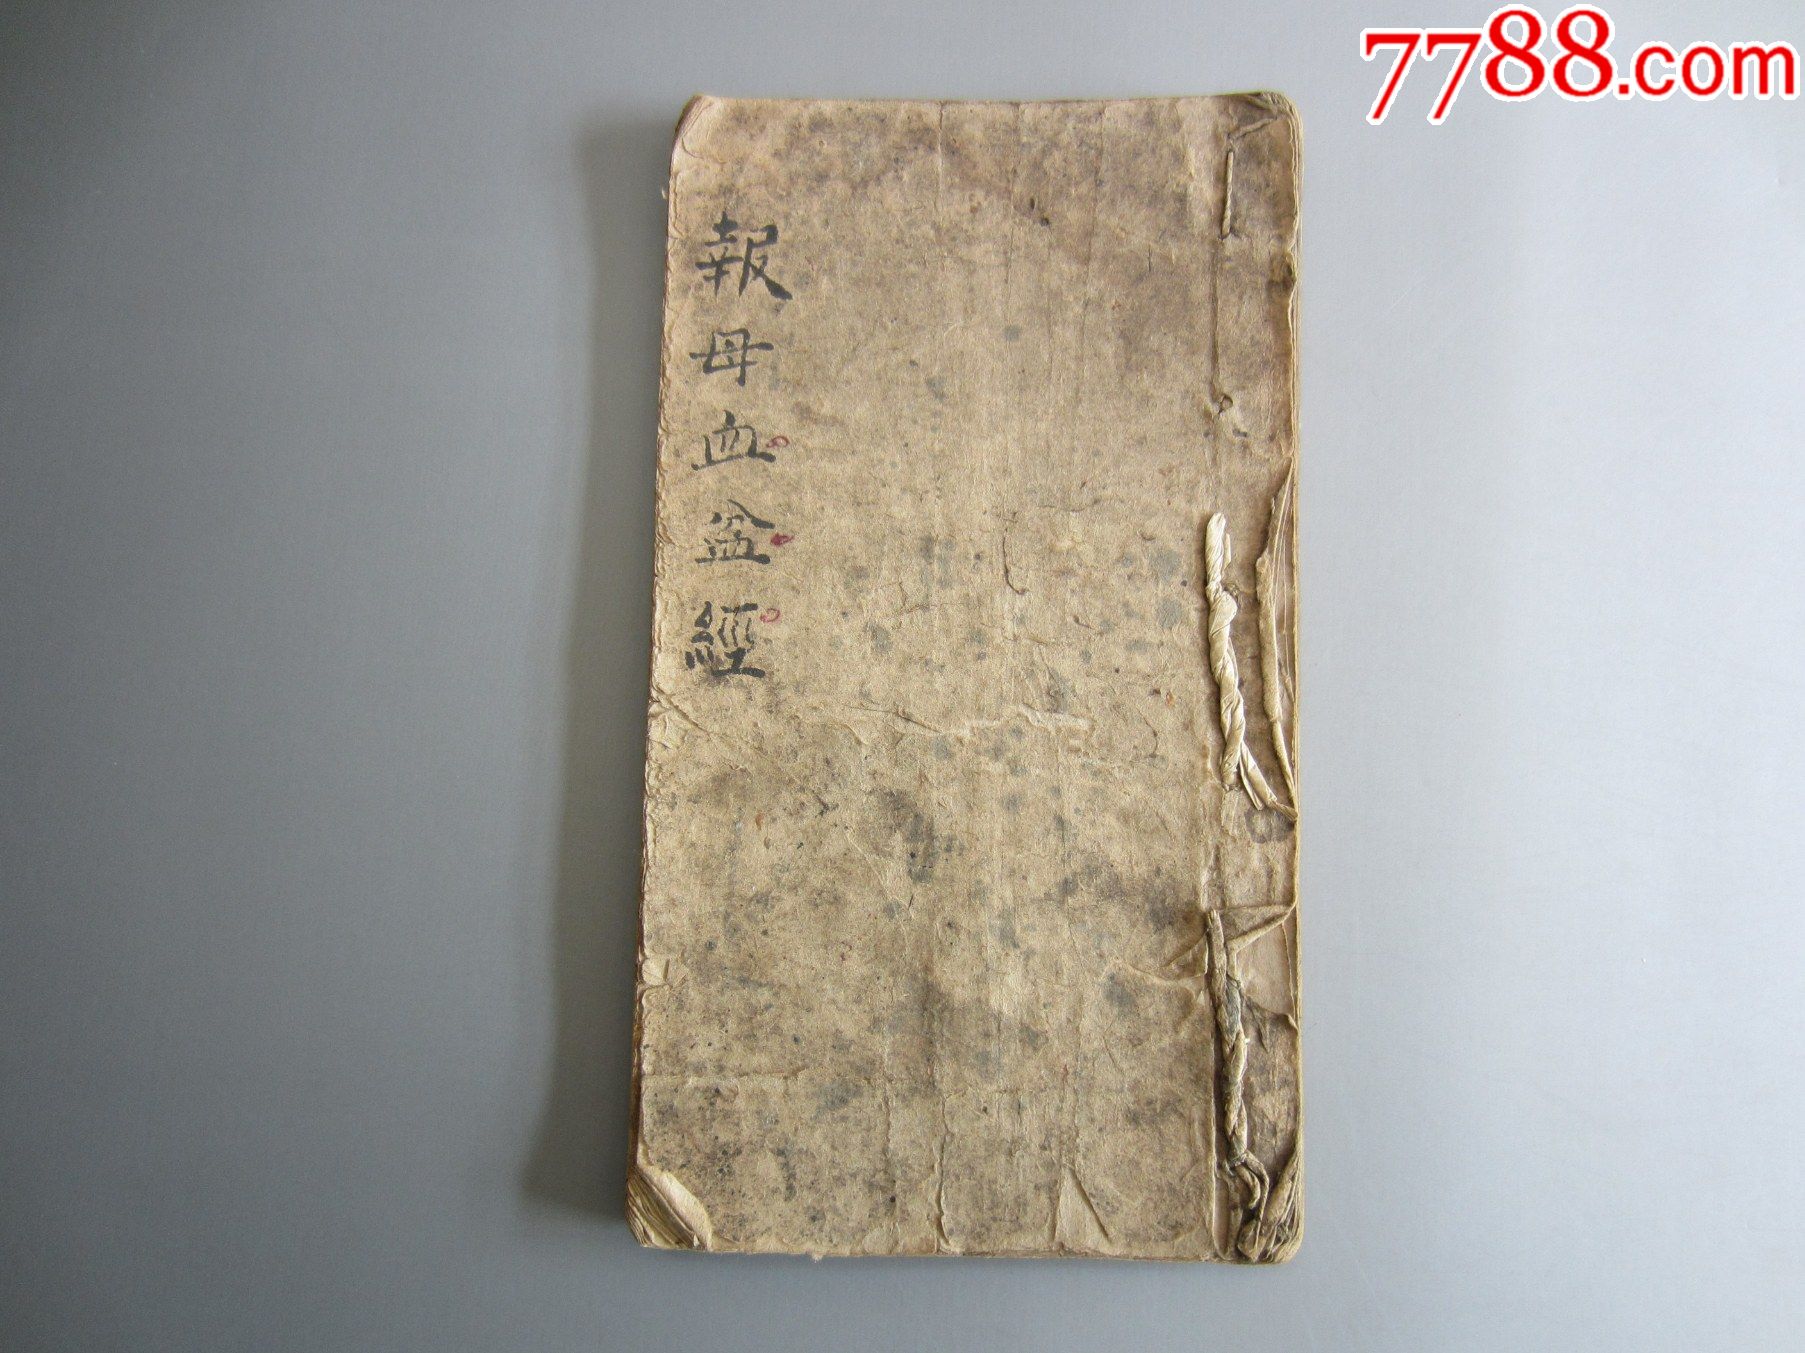 7788.com
報母血盆經